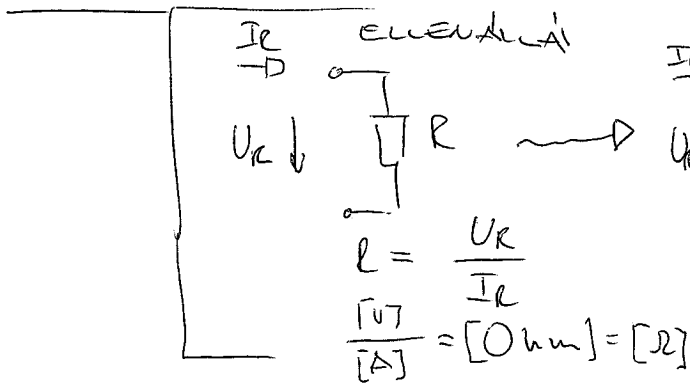 I_R ELLENÁLLÁ
U_R R
R = U_R / I_R
[V] / [A] = [Ohm] = [Ω]